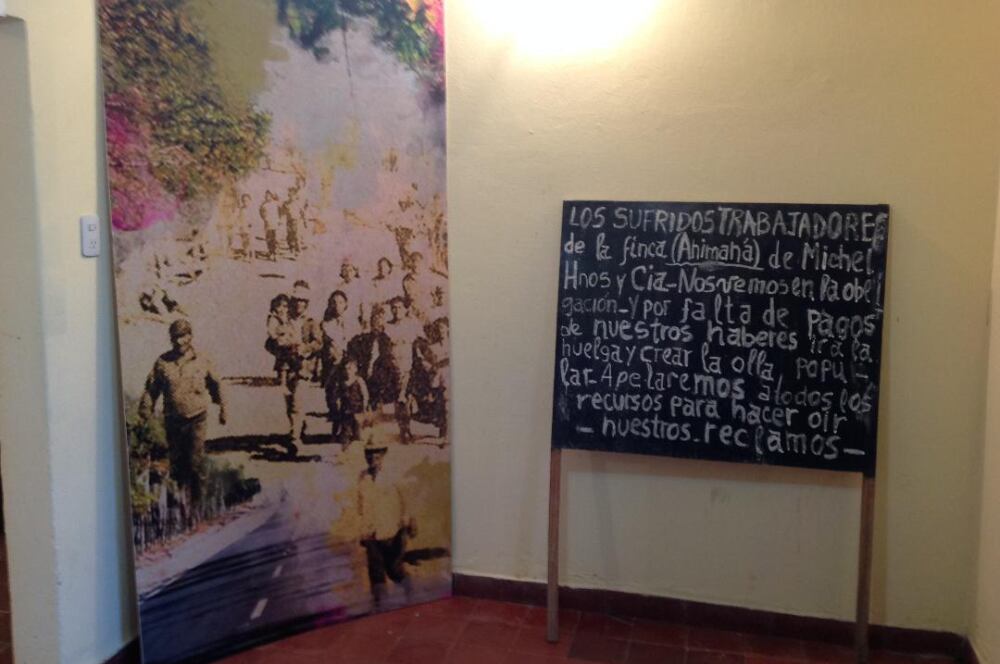 LOS SUFRIDOS TRABAJADORES
de la finca (Animaná) de Michel
Hnos y Cia_Nos vemos en la obli
gación_y por falta de pagos
de nuestros haberes ir a la
huelga y crear la olla popu_
lar_Apelaremos a todos los
recursos para hacer oir
_nuestros_reclamos_